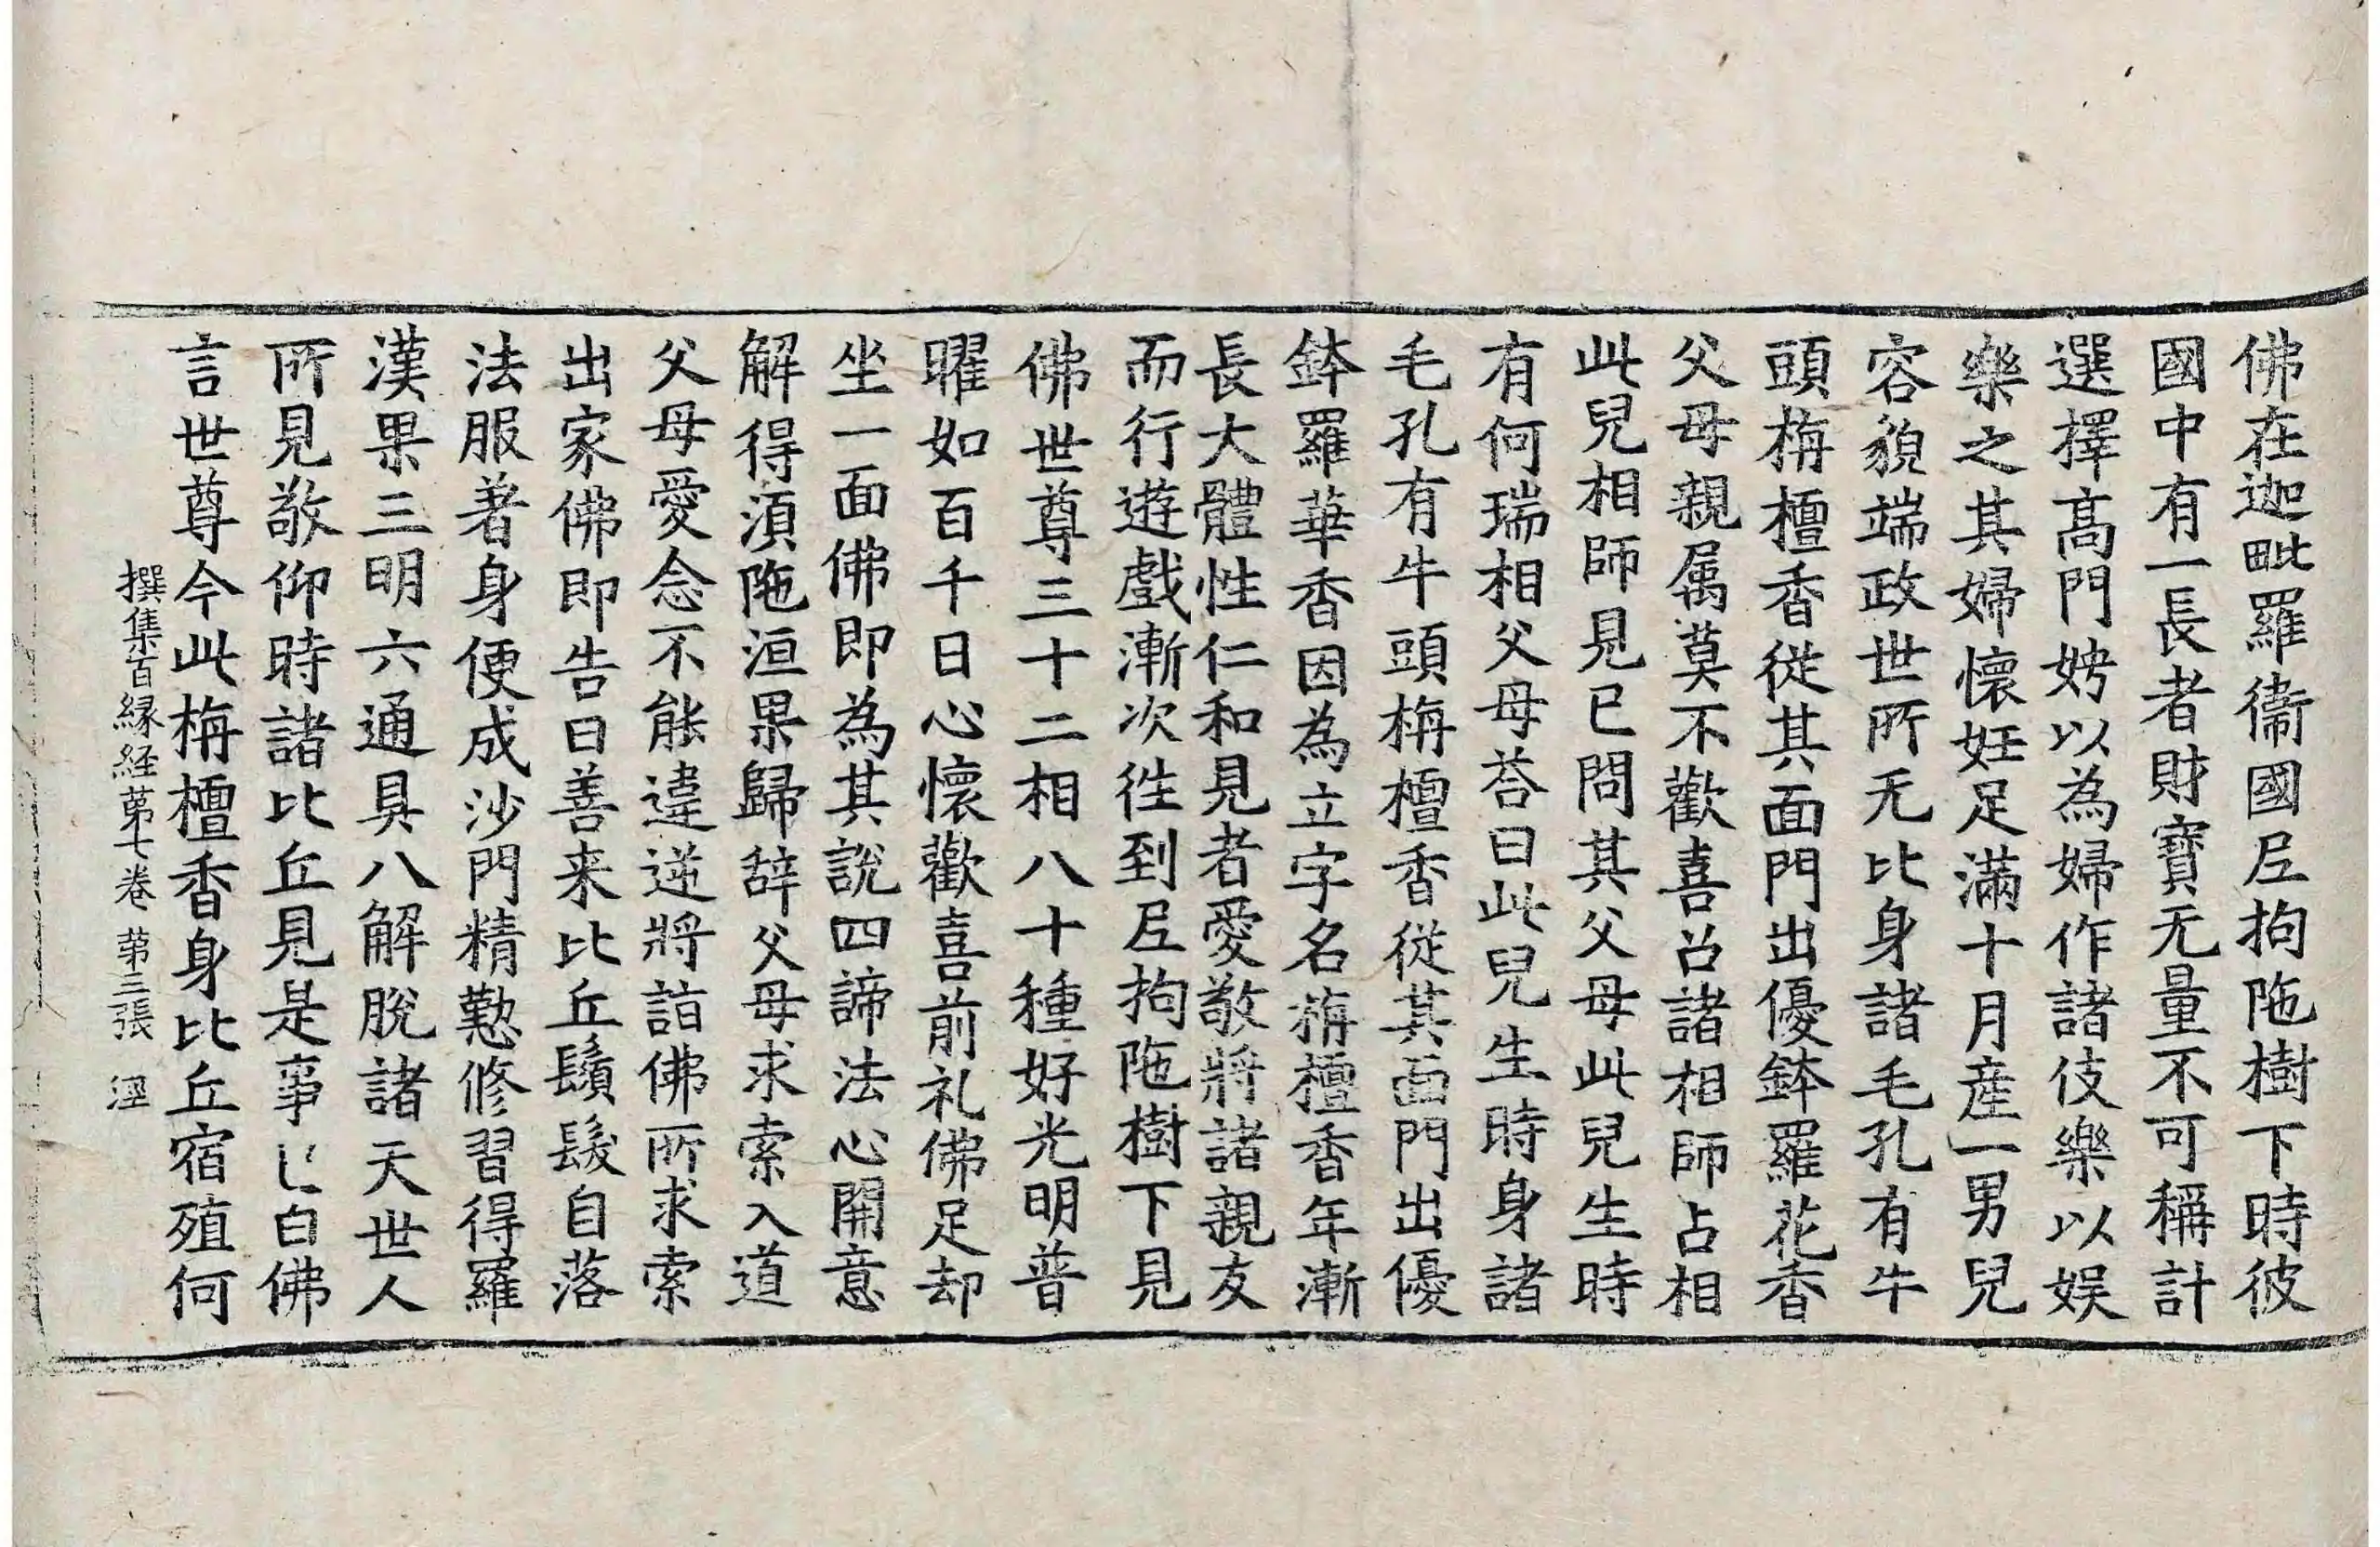 佛在迦毗羅衛國尼拘陁樹下時彼
國中有一長者財寶无量不可稱計
選擇高門娉以為婦作諸伎樂以娛
樂之其婦懷妊足滿十月産一男兒
容貌端政世所无比身諸毛孔有牛
頭栴檀香從其面門出優鉢羅花香
父母親属莫不歡喜召諸相師占相
此兒相師見已問其父母此兒生時
有何瑞相父母荅曰此兒生時身諸
毛孔有牛頭栴檀香從其面門出優
鉢羅華香因為立字名栴檀香年漸
長大體性仁和見者愛敬將諸親友
而行遊戲漸次徃到尼拘陁樹下見
佛世尊三十二相八十種好光明普
曜如百千日心懷歡喜前礼佛足却
坐一面佛即為其說四諦法心開意
解得湏陁洹果歸辝父母求索入道
父母愛念不能違逆將詣佛所求索
出家佛即告曰善来比丘鬚髮自落
法服著身便成沙門精懃修習得羅
漢果三明六通具八解脫諸天世人
所見敬仰時諸比丘見是事已白佛
言世尊今此栴檀香身比丘宿殖何
撰集百縁経苐七卷 苐三張 涇